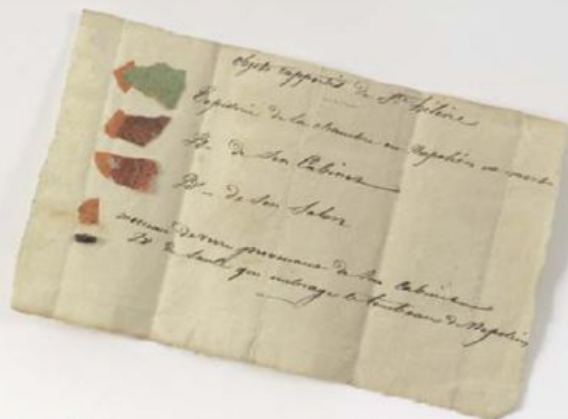 Objets rapportés de Ste Hélène
Tapisserie de la chambre où Napoléon est mort
Id - de Son Cabinet
Id - de Son Salon
morceau de provenant de Son Cabinet
Id de Saule qui ombrage le tombeau de Napoléon